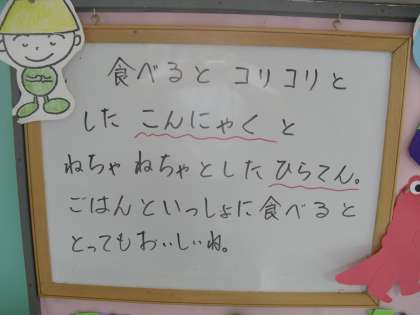 食べると コリコリと
した こんにゃく と
ねちゃ ねちゃとした ひらてん。
ごはんといっしょに食べると
とってもおいしいね。